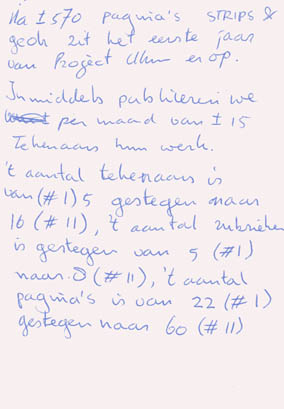 Na ± 570 pagina's STRIPS &
gook zit het eerste jaar
van Project Ulm er op.
Inmiddels publiceren we
per maand van ± 15
Tekenaars hun werk.
't aantal tekenaars is
van (#1) 5 gestegen naar
16 (#11), 't aantal rubrieken
is gestegen van 5 (#1)
naar 8 (#11), 't aantal
pagina's is van 22 (#1)
gestegen naar 60 (#11)